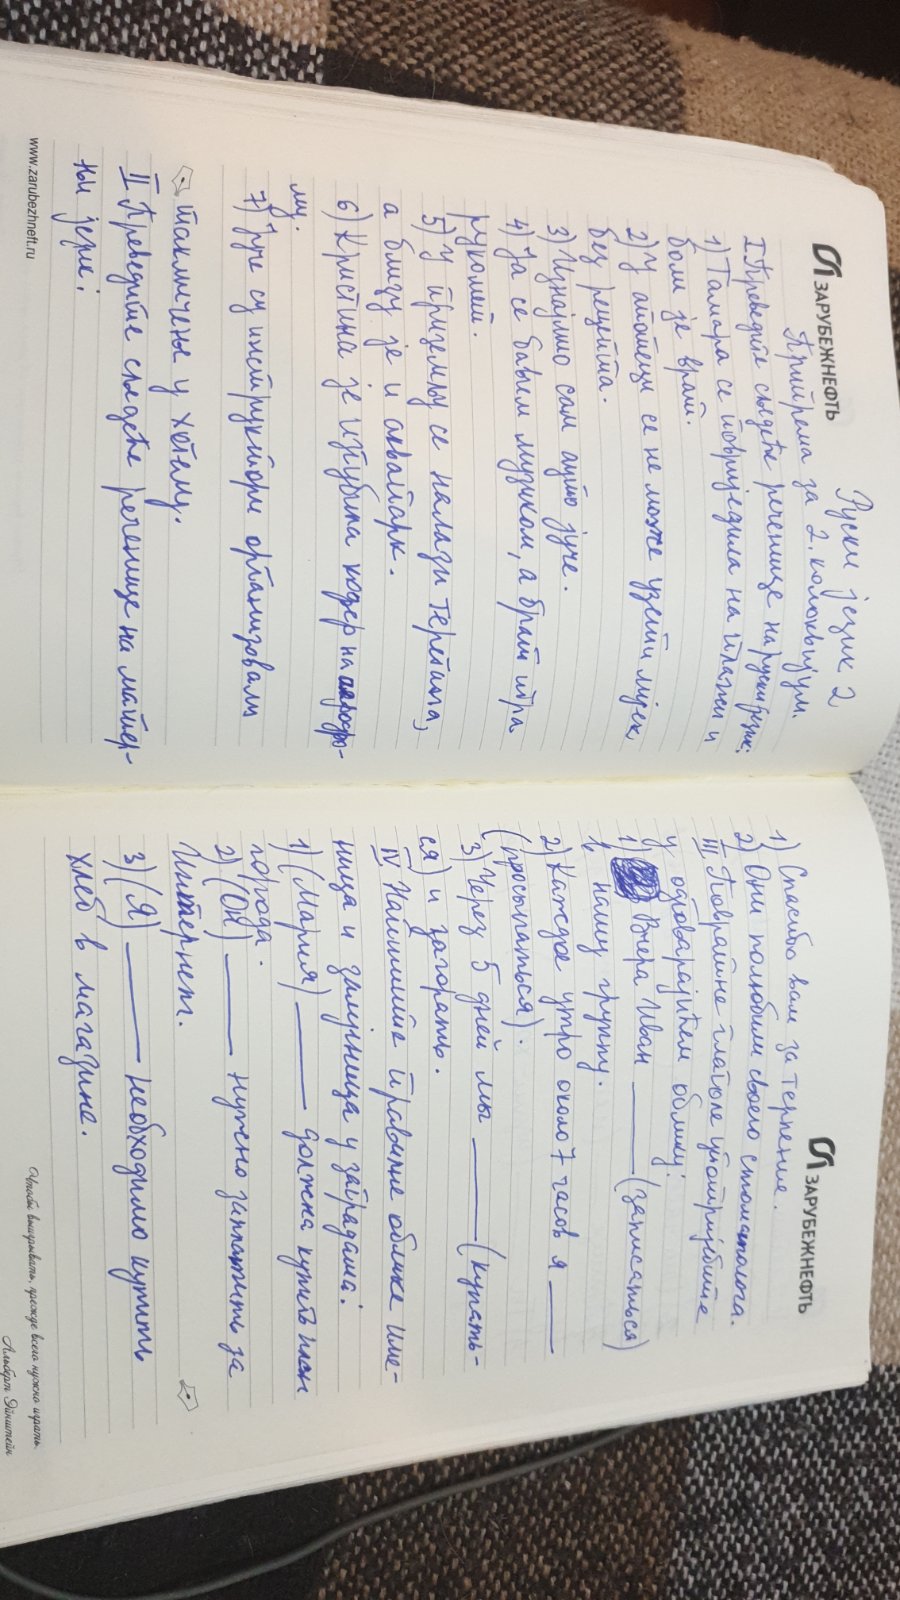 ЗАРУБЕЖНЕФТЬ
Руски језик 2
Припрема за 2. колоквијум
I Преведите сљедеће реченице на руски језик:
1) Тамара се повриједила на плажи и
боли је врат.
2) У апотеци се не може узети лијек
без рецепта.
3) Изнајмио сам ауто јуче.
4) Ја се бавим музиком, а брат игра
рукомет.
5) У приземљу се налази теретана,
а близу је и аквапарк.
6) Кристина је изгубила кофер на аеродро-
му.
7) Јуче су инструктори организовали
такмичење у хотелу.
II Преведите сљедеће реченице на матер-
њи језик:
www.zarubezhneft.ru
ЗАРУБЕЖНЕФТЬ
1) Спасибо вам за терпение.
2) Они полюбили своего стоматолога.
III Повратне глаголе употријебите
у одговарајућем облику:
1) Вчера Иван ____ (записаться)
в нашу группу.
2) Каждое утро около 7 часов я ____
(просыпаться).
3) Через 5 дней мы ____ (купать-
ся) и загорать.
IV Напишите правилне облике име-
ница и замјеница у заградама:
1) (Мария) ____ должна купить план
города.
2) (Он) ____ нужно заплатить за
Интернет.
3) (Я) ____ необходимо купить
хлеб в магазине.
Чтобы выигрывать, прежде всего нужно играть.
Альберт Эйнштейн